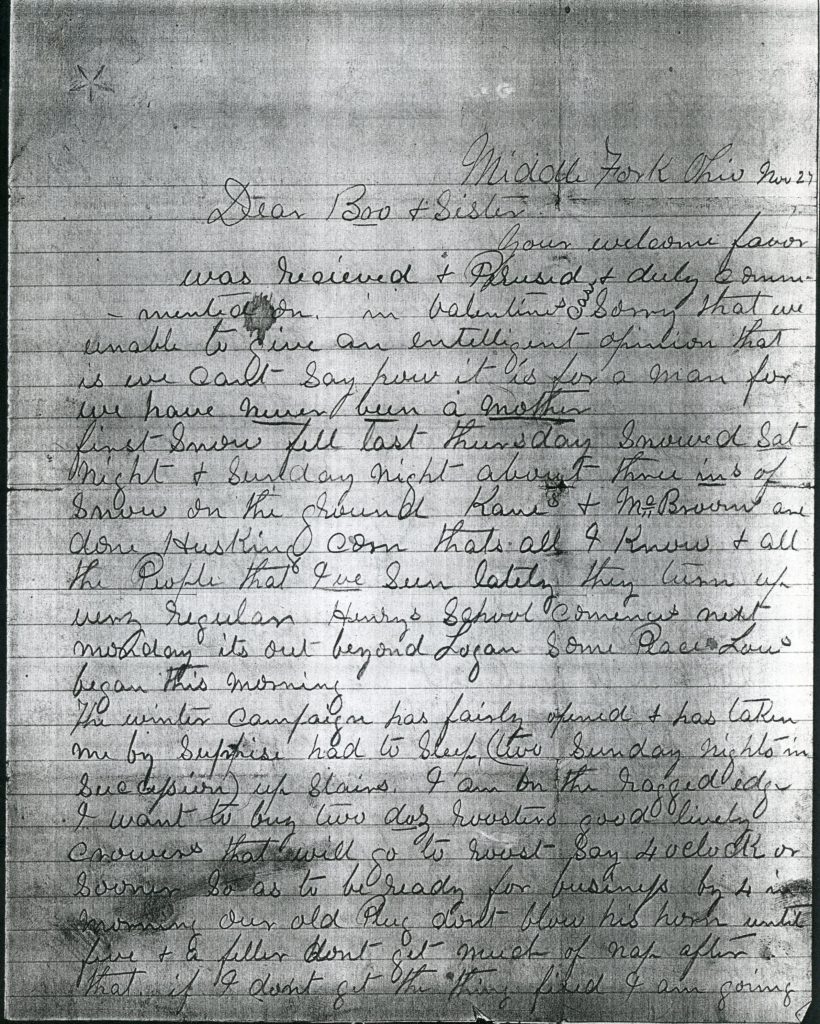 Middle Fork Ohio Nov 27
Dear Boo + Sister
Your welcome favor
was recieved + Perused + duly comm-
- mented on. in Valentines case Sorry that we
unable to give an entelligent opinion that
is we can't Say how it is for a man for
we have never been a mother
first Snow fell last thursday Snowed Sat
night + Sunday night about three ins of
Snow on the ground Kanes + McBroom are
done Husking corn thats all I Know + all
the People that I've Seen lately they turn up
very regular Henrys School comences next
monday its out beyond Logan Some Place Lous
began this morning
The winter campaign has fairly opened + has taken
me by Suprise had to Sleep (two Sunday nights in
Succession) up Stairs. I am on the ragged edge
I want to buy two doz roosters good lively
crowers that will go to roost Say 4 oclock or
Sooner So as to be ready for business by 4 in
morning Our old Plug dont blow his horn until
five + a feller dont get much of nap after
that if I dont get the thing fixed I am going